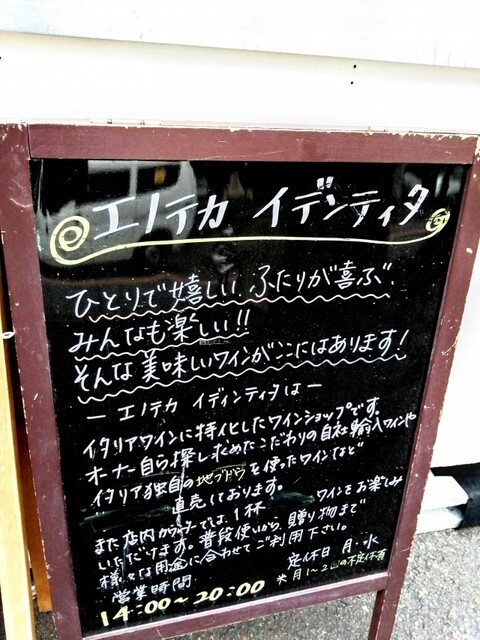 エノテカ イデンティタ
ひとりで嬉しい ふたりが喜ぶ
みんなも楽しい!!
そんな美味しいワインがここにはあります!
ー エノテカ イディンティタは ー
イタリアワインに特化したワインショップです。
オーナー自ら探し求めたこだわりの自社輸入ワインや
イタリア独自の地ブドウを使ったワインなど
直売しております。
また店内カウンターでは、1杯 ワインをお楽しみ
いただけます。普段使いから、贈り物まで
様々な用途に合わせてご利用下さい。
営業時間 定休日 月・水
14:00~20:00 *月1~2回の不定休有